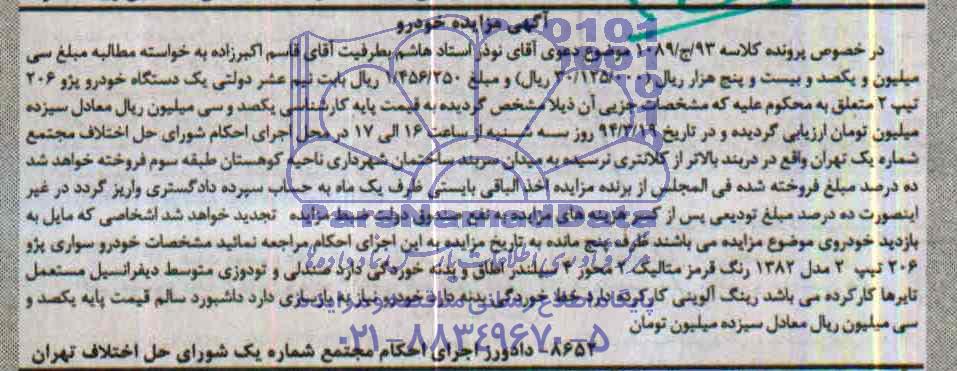 آگهی مزایده خودرو
در خصوص پرونده کلاسه ۹۳/ج/۱۰۸۹ موضوع دعوی آقای نوذر استاد هاشم بطرفیت آقای قاسم اکبرزاده به خواسته مطالبه مبلغ سی
میلیون و یکصد و بیست و پنج هزار ریال (۳۰/۱۲۵/۰۰۰ ریال) و مبلغ ۱/۴۵۶/۲۵۰ ریال بابت نیم عشر دولتی یک دستگاه خودرو پژو ۲۰۶
تیپ ۲ متعلق به محکوم علیه که مشخصات جزیی آن ذیلا مشخص گردیده به قیمت پایه کارشناسی یکصد و سی میلیون ریال معادل سیزده
میلیون تومان ارزیابی گردیده و در تاریخ ۹۴/۳/۱۹ روز سه شنبه از ساعت ۱۶ الی ۱۷ در محل اجرای احکام شورای حل اختلاف مجتمع
شماره یک تهران واقع در دربند بالاتر از کلانتری نرسیده به میدان سربند ساختمان شهرداری ناحیه کوهستان طبقه سوم فروخته خواهد شد
ده درصد مبلغ فروخته شده فی المجلس از برنده مزایده اخذ الباقی بایستی ظرف یک ماه به حساب سپرده دادگستری واریز گردد در غیر
اینصورت ده درصد مبلغ تودیعی پس از کسر هزینه های مزایده به نفع صندوق دولت ضبط مزایده تجدید خواهد شد اشخاصی که مایل به
بازدید خودروی موضوع مزایده می باشند ظرف پنج مانده به تاریخ مزایده به این اجرای احکام مراجعه نمائید مشخصات خودرو سواری پژو
۲۰۶ تیپ ۲ مدل ۱۳۸۲ رنگ قرمز متالیک ۲ محور ۴ سیلندر اطاق و بدنه خوردگی دارد صندلی و تودوزی متوسط دیفرانسیل مستعمل
تایرها کارکرده می باشد رینگ آلوینی کارکرده دارد خط خوردگی بدنه دارد خودرو نیاز به بازسازی دارد داشبورد سالم قیمت پایه یکصد و
سی میلیون ریال معادل سیزده میلیون تومان
۸۶۵۴- دادورز اجرای احکام مجتمع شماره یک شورای حل اختلاف تهران
0101
1001
ParsNamadData
پایگاه اطلاع رسانی مناقصه و مزایده
۰۲۱-۸۸۳۴۹۶۷۰-۵